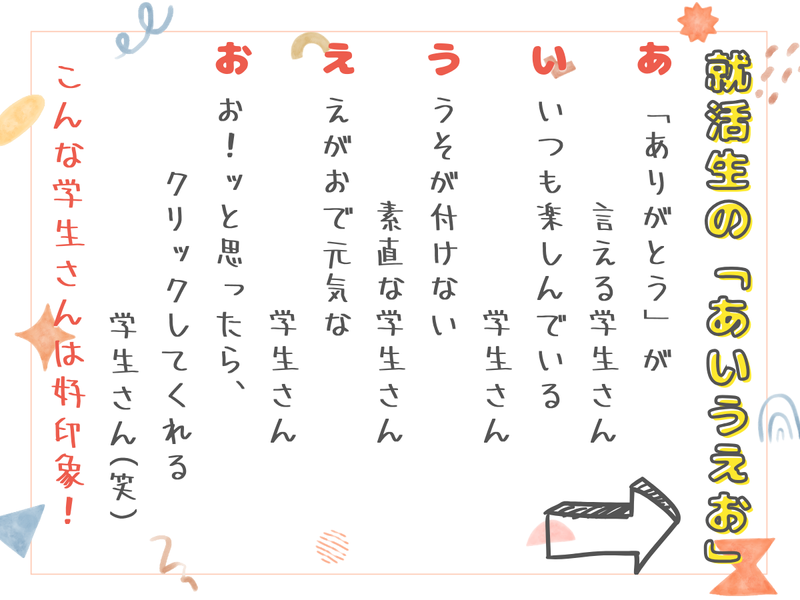 就活生の「あいうえお」
あ
「ありがとう」が
言える学生さん
い
いつも楽しんでいる
学生さん
う
うそが付けない
素直な学生さん
え
えがおで元気な
学生さん
お
お！ッと思ったら、
クリックしてくれる
学生さん(笑)
こんな学生さんは好印象！